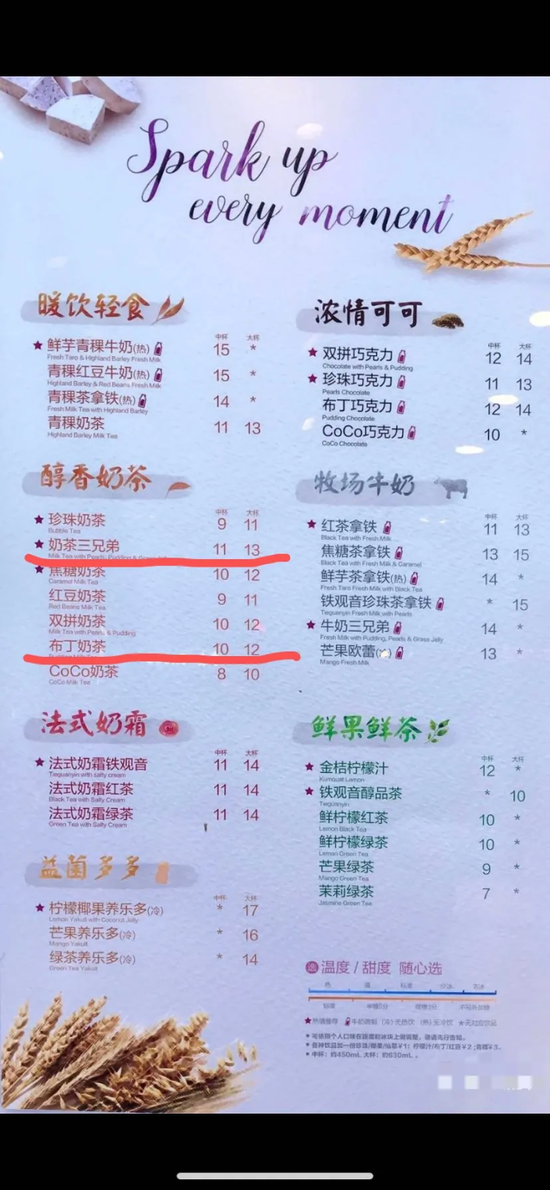 Spark up
every moment
暖饮轻食
中杯 大杯
★ 鲜芋青稞牛奶(热) 15 *
Fresh Taro & Highland Barley Fresh Milk
青稞红豆牛奶(热) 15 *
Highland Barley & Red Beans Fresh Milk
青稞茶拿铁(热) 14 *
Fresh Milk Tea with Highland Barley
青稞奶茶 11 13
Highland Barley Milk Tea
醇香奶茶
中杯 大杯
★ 珍珠奶茶 9 11
Bubble Tea
★ 奶茶三兄弟 11 13
Milk Tea with Pearls, Pudding &
★ 焦糖奶茶 10 12
Caramel Milk Tea
红豆奶茶 9 11
Red Beans Milk Tea
双拼奶茶 10 12
Milk Tea with Pearls & Pudding
布丁奶茶 10 12
CoCo奶茶 8 10
CoCo Milk Tea
法式奶霜
中杯 大杯
★ 法式奶霜铁观音 11 14
Tieguanyin with salty cream
法式奶霜红茶 11 14
Black Tea with Salty Cream
法式奶霜绿茶 11 14
Green Tea with Salty Cream
益菌多多
中杯 大杯
★ 柠檬椰果养乐多(冷) * 17
Lemon Yakult with Coconut Jelly
芒果养乐多(冷) * 16
Mango Yakult
绿茶养乐多(冷) * 14
Green Tea Yakult
浓情可可
中杯 大杯
★ 双拼巧克力 12 14
Chocolate with Pearls & Pudding
★ 珍珠巧克力 11 13
Pearls Chocolate
布丁巧克力 12 14
Pudding Chocolate
CoCo巧克力 10 *
CoCo Chocolate
牧场牛奶
★ 红茶拿铁 11 13
Black Tea with Fresh Milk
焦糖茶拿铁 13 15
Black Tea with Fresh Milk & Caramel
鲜芋茶拿铁(热) 14 *
Fresh Taro Fresh Milk with Black Tea
铁观音珍珠茶拿铁 * 15
Tieguanyin Fresh Milk with Pearls
★ 牛奶三兄弟 14 *
Fresh Milk with Pudding, Pearls & Grass Jelly
芒果欧蕾 13 *
Mango Fresh Milk
鲜果鲜茶
中杯 大杯
★ 金桔柠檬汁 12 *
Kumquat Lemon
★ 铁观音醇品茶 * 10
Tieguanyin
鲜柠檬红茶 10 *
Lemon Black Tea
鲜柠檬绿茶 10 *
Lemon Green Tea
芒果绿茶 9 *
Mango Green Tea
茉莉绿茶 7 *
Jasmine Green Tea
温度 / 甜度 随心选
中杯：约450mL 大杯：约630mL